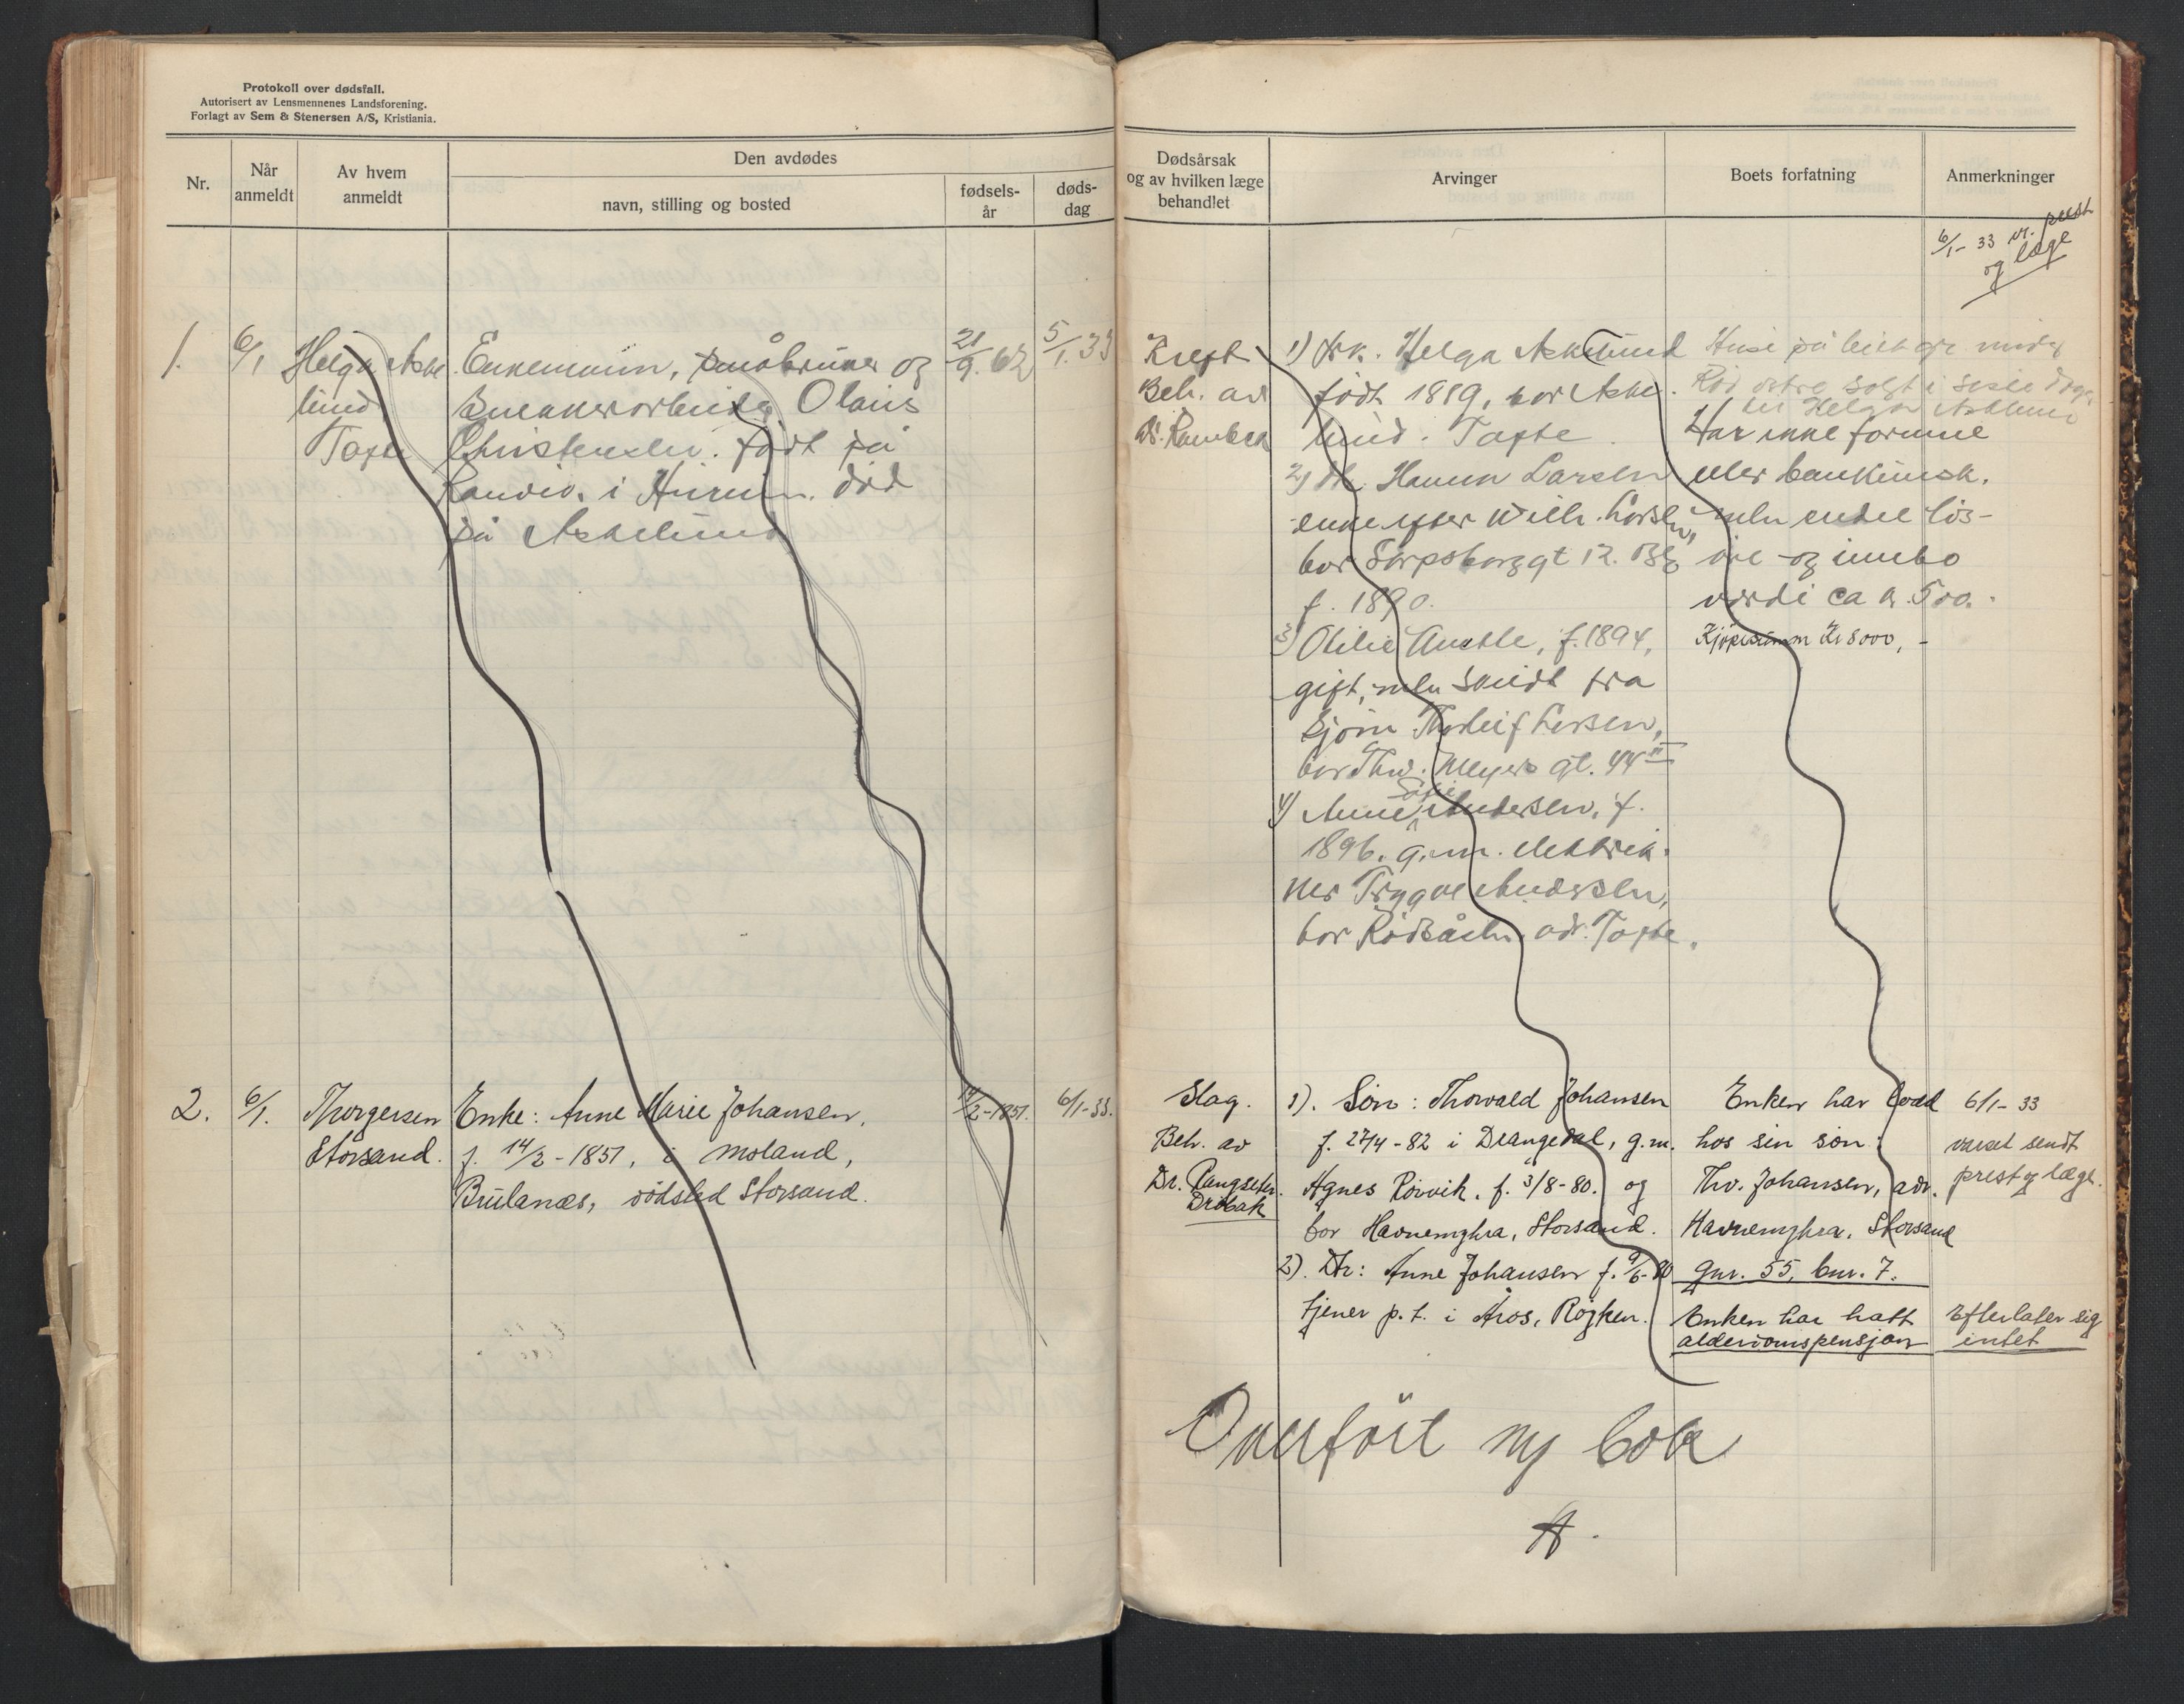 Protokoll over dødsfall.
Autorisert av Lensmennenes Landsforening.
Forlagt av Sem & Stenersen A/S, Kristiania.
Nr.
Når
anmeldt
Av hvem
anmeldt
Den avdødes
navn, stilling og bosted
fødsels-
år
døds-
dag
Dødsårsak
og av hvilken læge
behandlet
Arvinger
Boets forfatning
Anmerkninger
6/1- 33 vr. prest
og læge
1.
6/1
Helga Aske
lund
Tofte
Enkemann, småbruker og
Snekkerarbeider Olaus
Christensen. født på
i Hurum. død
på Askelund
21/9. 62
5/1.33
Kreft
Beh. av
Dr.
1) Frk. Helga Askelund
født 1889, bor Aske-
lund. Tofte.
2) Fr. Hanna Larsen
enke efter Wilh. Larsen,
bor Sarpsborggt 12. Oslo
f. 1890.
3) Otilie f. 1894,
gift, men skildt fra
Thorleif Larsen,
bor Thv. Meyers gt. 44 II
4) Anne Andersen, f.
1896. g.m. elektrik-
ker Trygve Andersen,
bor Rødsåsen adr. Tofte.
Huse på under
Rød østre solgt i siste dage
til Helga Askelund
Har ikke formue
eller bankinnsk.
men endel løs-
øre og innbo
verdi ca kr. 500.-
Kjøpesummen Kr 8000,-
2.
6/1.
Thorgersen
Storsand.
Enke: Anne Marie Johansen,
f. 14/2-1851, i Moland,
dødsted Storsand.
14/2-1851.
6/1-33.
Slag.
Beh. av
Dr.
Drøbak
1). Søn: Thorvald Johansen
f. 27/4-82 i Drangedal, g.m.
Agnes Rørvik, f. 3/8-80. og
bor Havnemyhra, Storsand.
2). Dtr: Anne Johansen f. 9/6-80
tjener p.t. i Åros, Røyken.
Enken har bodd
hos sin søn:
Thv. Johansen, adr.
Havnemyhra, Storsand
gnr. 55, bnr. 7.
Enken har hatt
alderdomspensjon
6/1- 33
varsel sendt
prest og læge.
Efterlater sig
intet
Overført ny bok